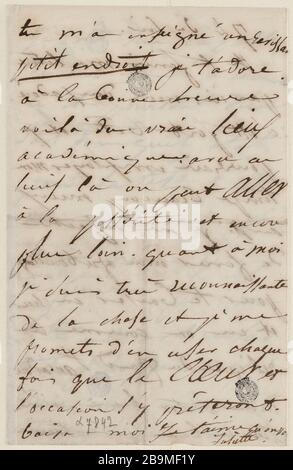 tu m'a enseigné un
petit endroit je t'adore.
à la bonne heure
voilà du vrai
académique avec ce
là on peut aller
à la postérité et encore
plus loin. quant à moi
je suis très reconnaissante
de la chose et je me
promets d'en user chaque
fois que le cœur et
l'occasion s'y prêteront.
baise moi. Je t'aime
Juliette
α7842
alamy
Image ID: 2B9MF1Y
www.alamy.com